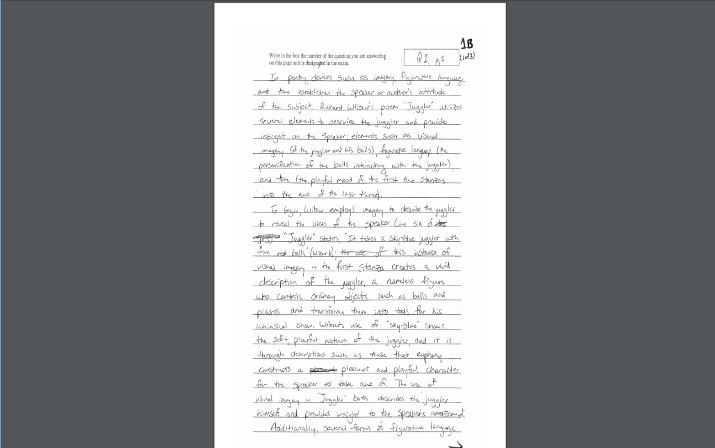 1B
Write in the box the number of the question you are answering
on this page as it is designated in the exam.
Q1
(1 of 3)
In poetry, devices such as imagery, figurative language,
and tone establishes the speaker or author's attitude
of the subject. Richard Wilbur's poem "Juggler" utilizes
several elements to describe the juggler and provide
insight on the speaker, elements such as visual
imagery (of the juggler and his balls), figurative language (the
personification of the balls interacting with the juggler),
and tone (the playful mood of the first two stanzas
into the awe of the last three).
To begin, Wilbur employs imagery to describe the juggler
to reveal the ideas of the speaker. Line six of
"Juggler" states, It takes a sky-blue juggler with
five balls (Wilbur); this instance of
visual imagery in the first stanza creates a vivid
description of the juggler, a nameless figure
who controls ordinary objects such as balls and
plates and transforms them into tools for his
whimsical show. Wilbur's use of "sky-blue" shows
the soft, playful nature of the juggler, and it is
through descriptions such as these that euphony
constructs a pleasant and playful character
for the speaker to take awe of. The use of
visual imagery in "Juggler" both describes the juggler
himself and provides insight to the speaker's amazement.
Additionally, several forms of figurative language